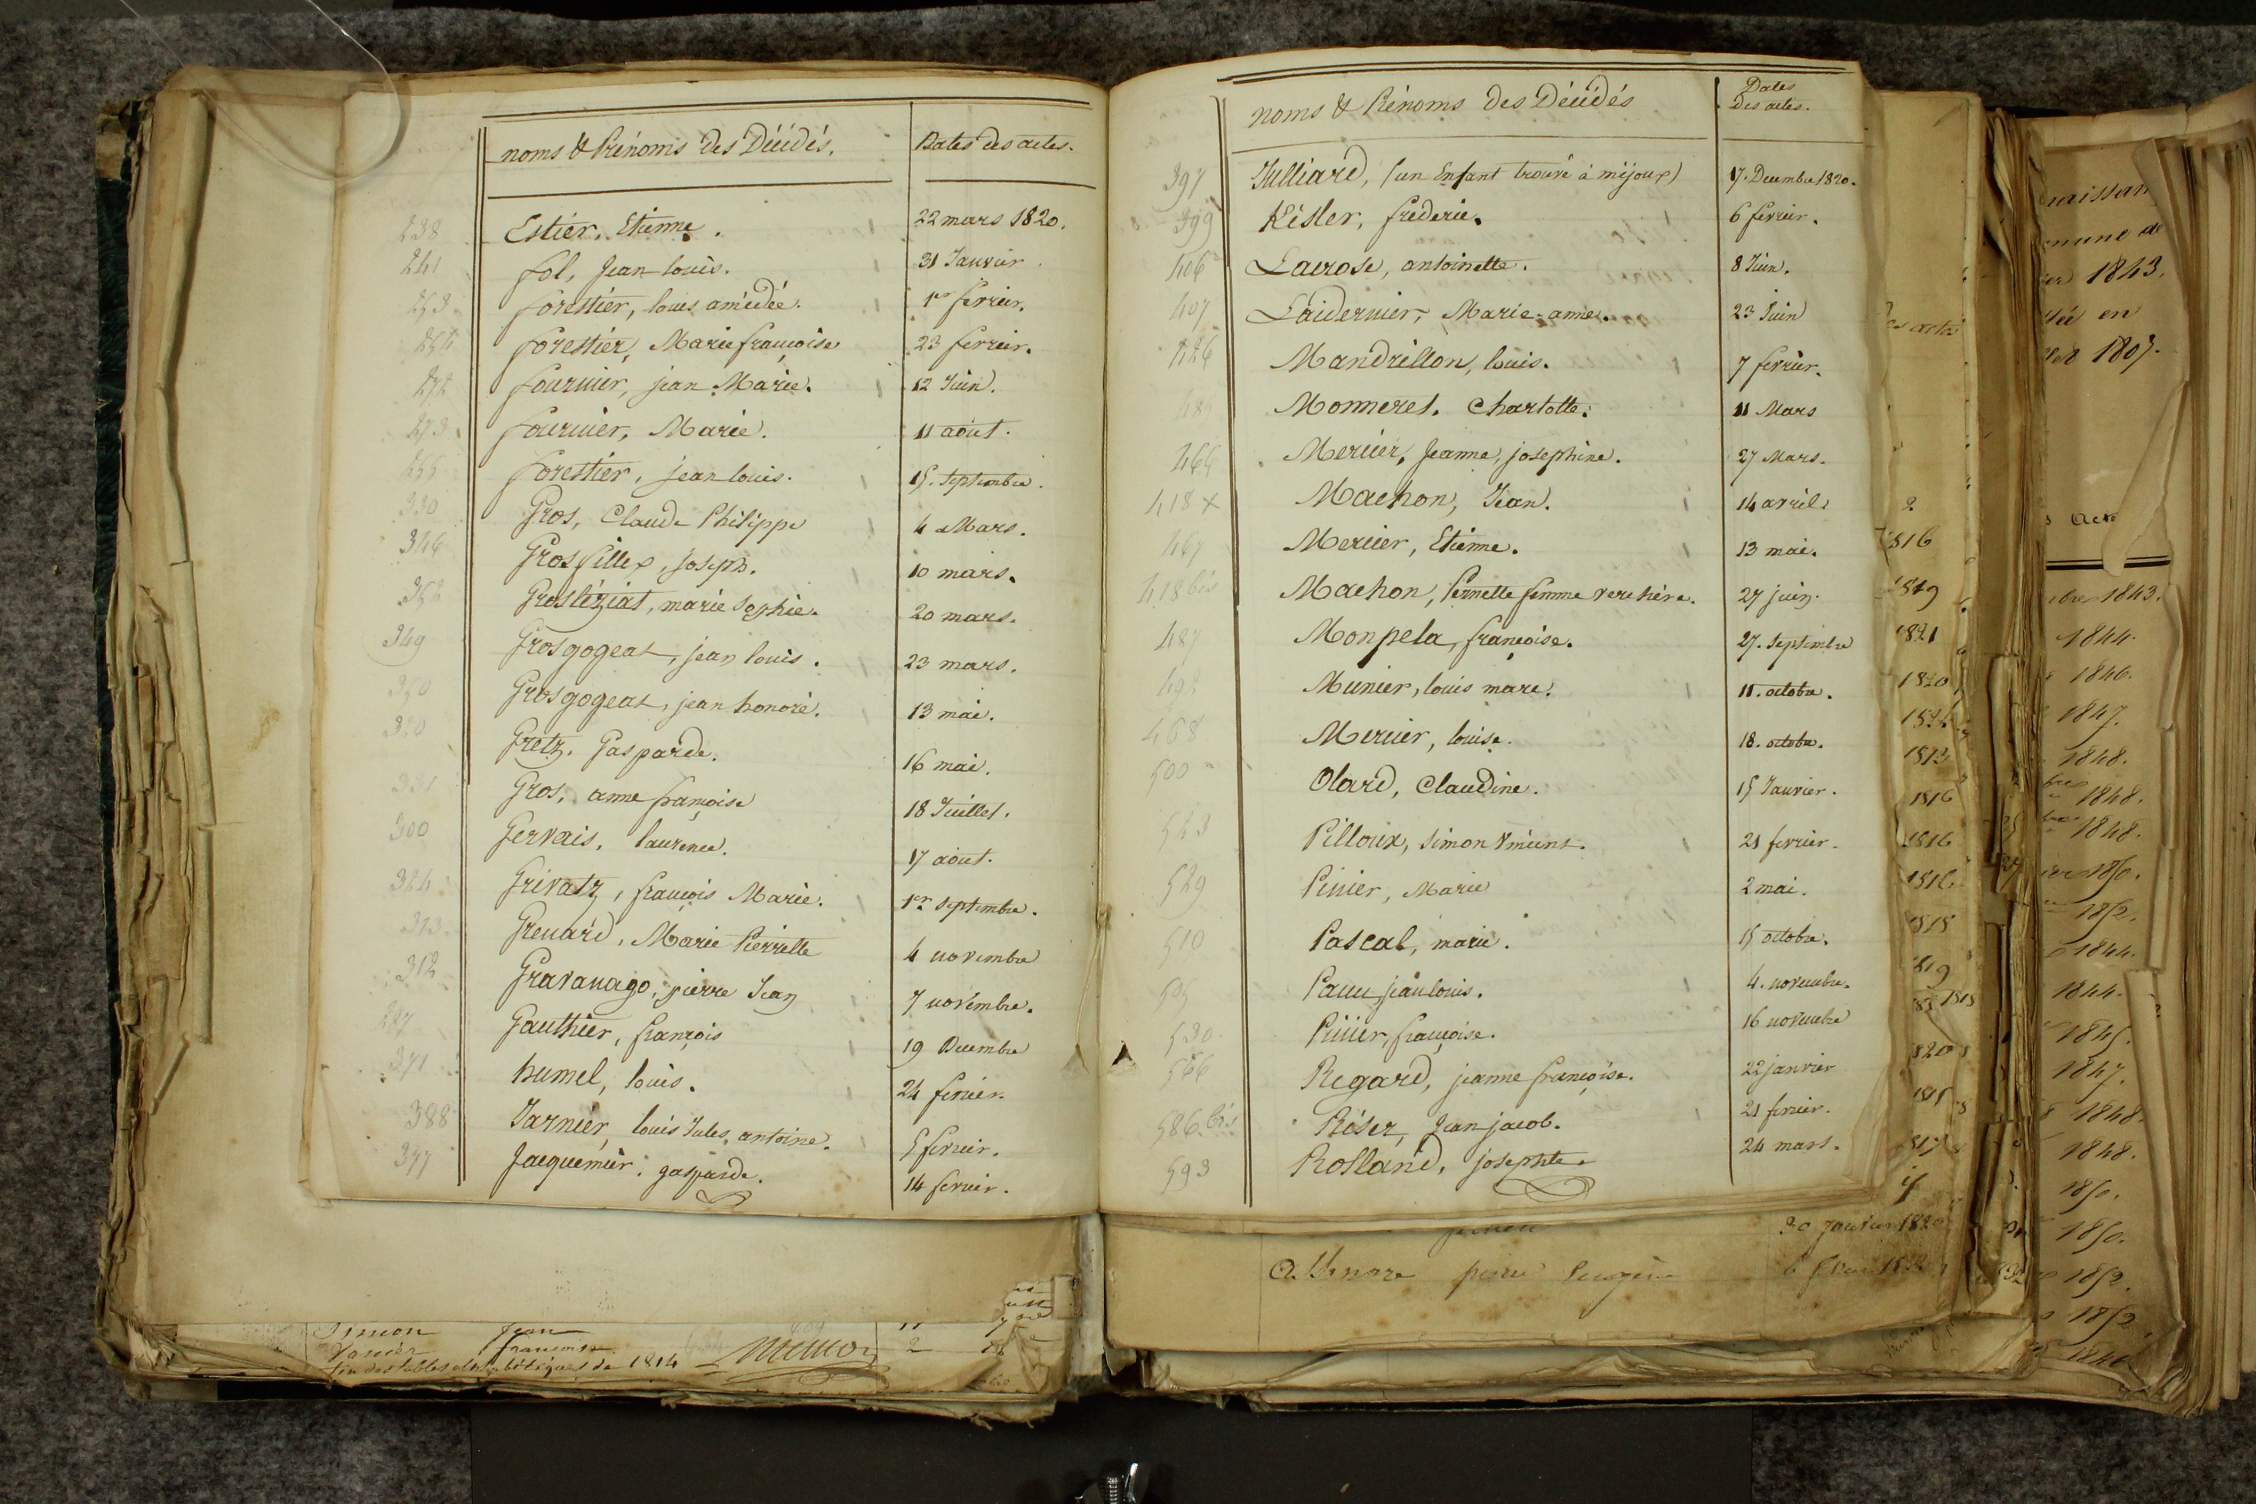 noms & Prénoms des Décédés. Dates des actes.
238 Estier, Etienne. 22 mars 1820.
241 fol, Jean louis. 31 Janvier.
253 forestier, louis amédée. 1er fevrier.
254 forestier, Marie françoise 23 fevrier.
272 fournier, jean Marie. 12 Juin.
273 fournier, Marie. 11 août.
255 forestier, jean louis. 15. septembre.
330 Gros, Claude Philippe 4 Mars.
346 Grosfillex, joseph. 10 mars.
352 Grosléziat, marie sophie. 20 mars.
349 Grosgogeat, jean louis. 23 mars.
350 Grosgogeat, jean honoré. 13 mai.
320 Gretz, Gasparde. 16 mai.
331 Gros, anne françoise 18 Juillet.
300 Gervais, laurence. 17 août.
324 Grivatz, françois Marie. 1er septembre.
313 Grenard, Marie Pierrette 4 novembre
312 Gravanago, pierre Jean 7 novembre.
287 Gauthier, françois 19 Decembre
371 humel, louis. 24 fevrier.
388 Jarnier, louis Jules antoine. 5 fevrier.
377 Jacquemier, gasparde. 14 fevrier.
Simon Jean
Vanier francoise 2
fin des tables alphabétiques de 1814
noms & Prénoms des Décédés Dates des actes.
397 Julliard, (un Enfant trouvé à mijoux) 17. Decembre 1820.
399 Kisler, frederic. 6 fevrier.
406 Lacrose, antoinette. 8 Juin.
407 Laidernier, Marie-anne. 23 Juin
426 Mandrillon, louis. 7 fevrier.
485 Monneret, Charlotte. 11 Mars
466 Mercier, Jeanne, josephine. 27 Mars.
418 x Machon, Jean. 14 avril.
467 Mercier, Etienne. 13 mai.
418 bis Machon, Pernette femme verchère. 27 juin.
487 Monpela, françoise. 27. septembre
492 Munier, louis marc. 11. octobre.
468 Mercier, louise. 18. octobre.
500 Olard, Claudine. 15 Janvier.
523 Pilloux, simon vincent. 21 fevrier.
529 Pinier, Marie 2 mai.
510 Pascal, marie. 15 octobre.
505 jean louis. 4. novembre.
530 Pinier, françoise. 16 novembre
566 Regard, jeanne françoise. 22 janvier
586 bis Röser, Jean jacob. 21 fevrier.
593 Rolland, josephte. 24 mars.
30 Janvier 1820
pierre
2
1816
1819
1821
1820
1813
1816
1816
1816
1818
1819
1818
1820
1843.
en
1807.
1843.
1844.
1846.
1847.
1848.
1848.
1848.
1850.
1852.
1844.
1844.
1845.
1847.
1848.
1848.
1850.
1850.
1852.
1852.